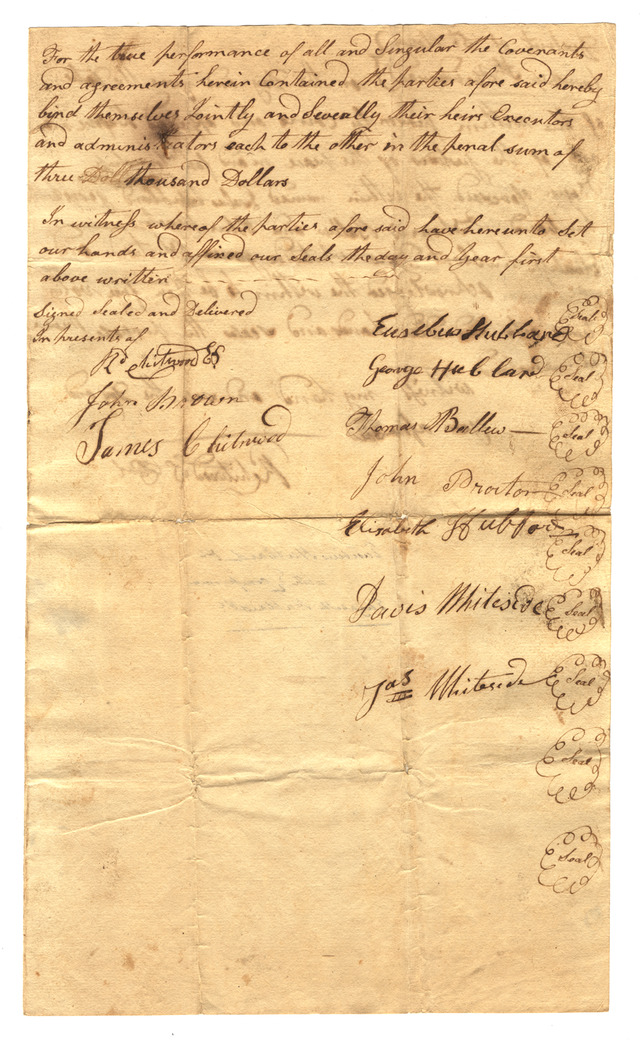 For the true performance of all and Singular the Covenants
and agreements herein Contained the parties afore said hereby
bind themselves Jointly and Severally their heirs Executors
and administrators each to the other in the penal sum of
three thousand Dollars
In witness where of the parties afore said have here unto Set
our hands and affixed our Seals the day and Year first
above written
Signed Sealed and Delivered
In presents of
Eusebus Hubbard Seal
Rd Chitwood
George Hubbard Seal
John
Thomas Ballew Seal
James Chitwood
John Proctor Seal
Elisabeth Seal
Davis Whiteside Seal
Jas Whiteside Seal
Seal
Seal